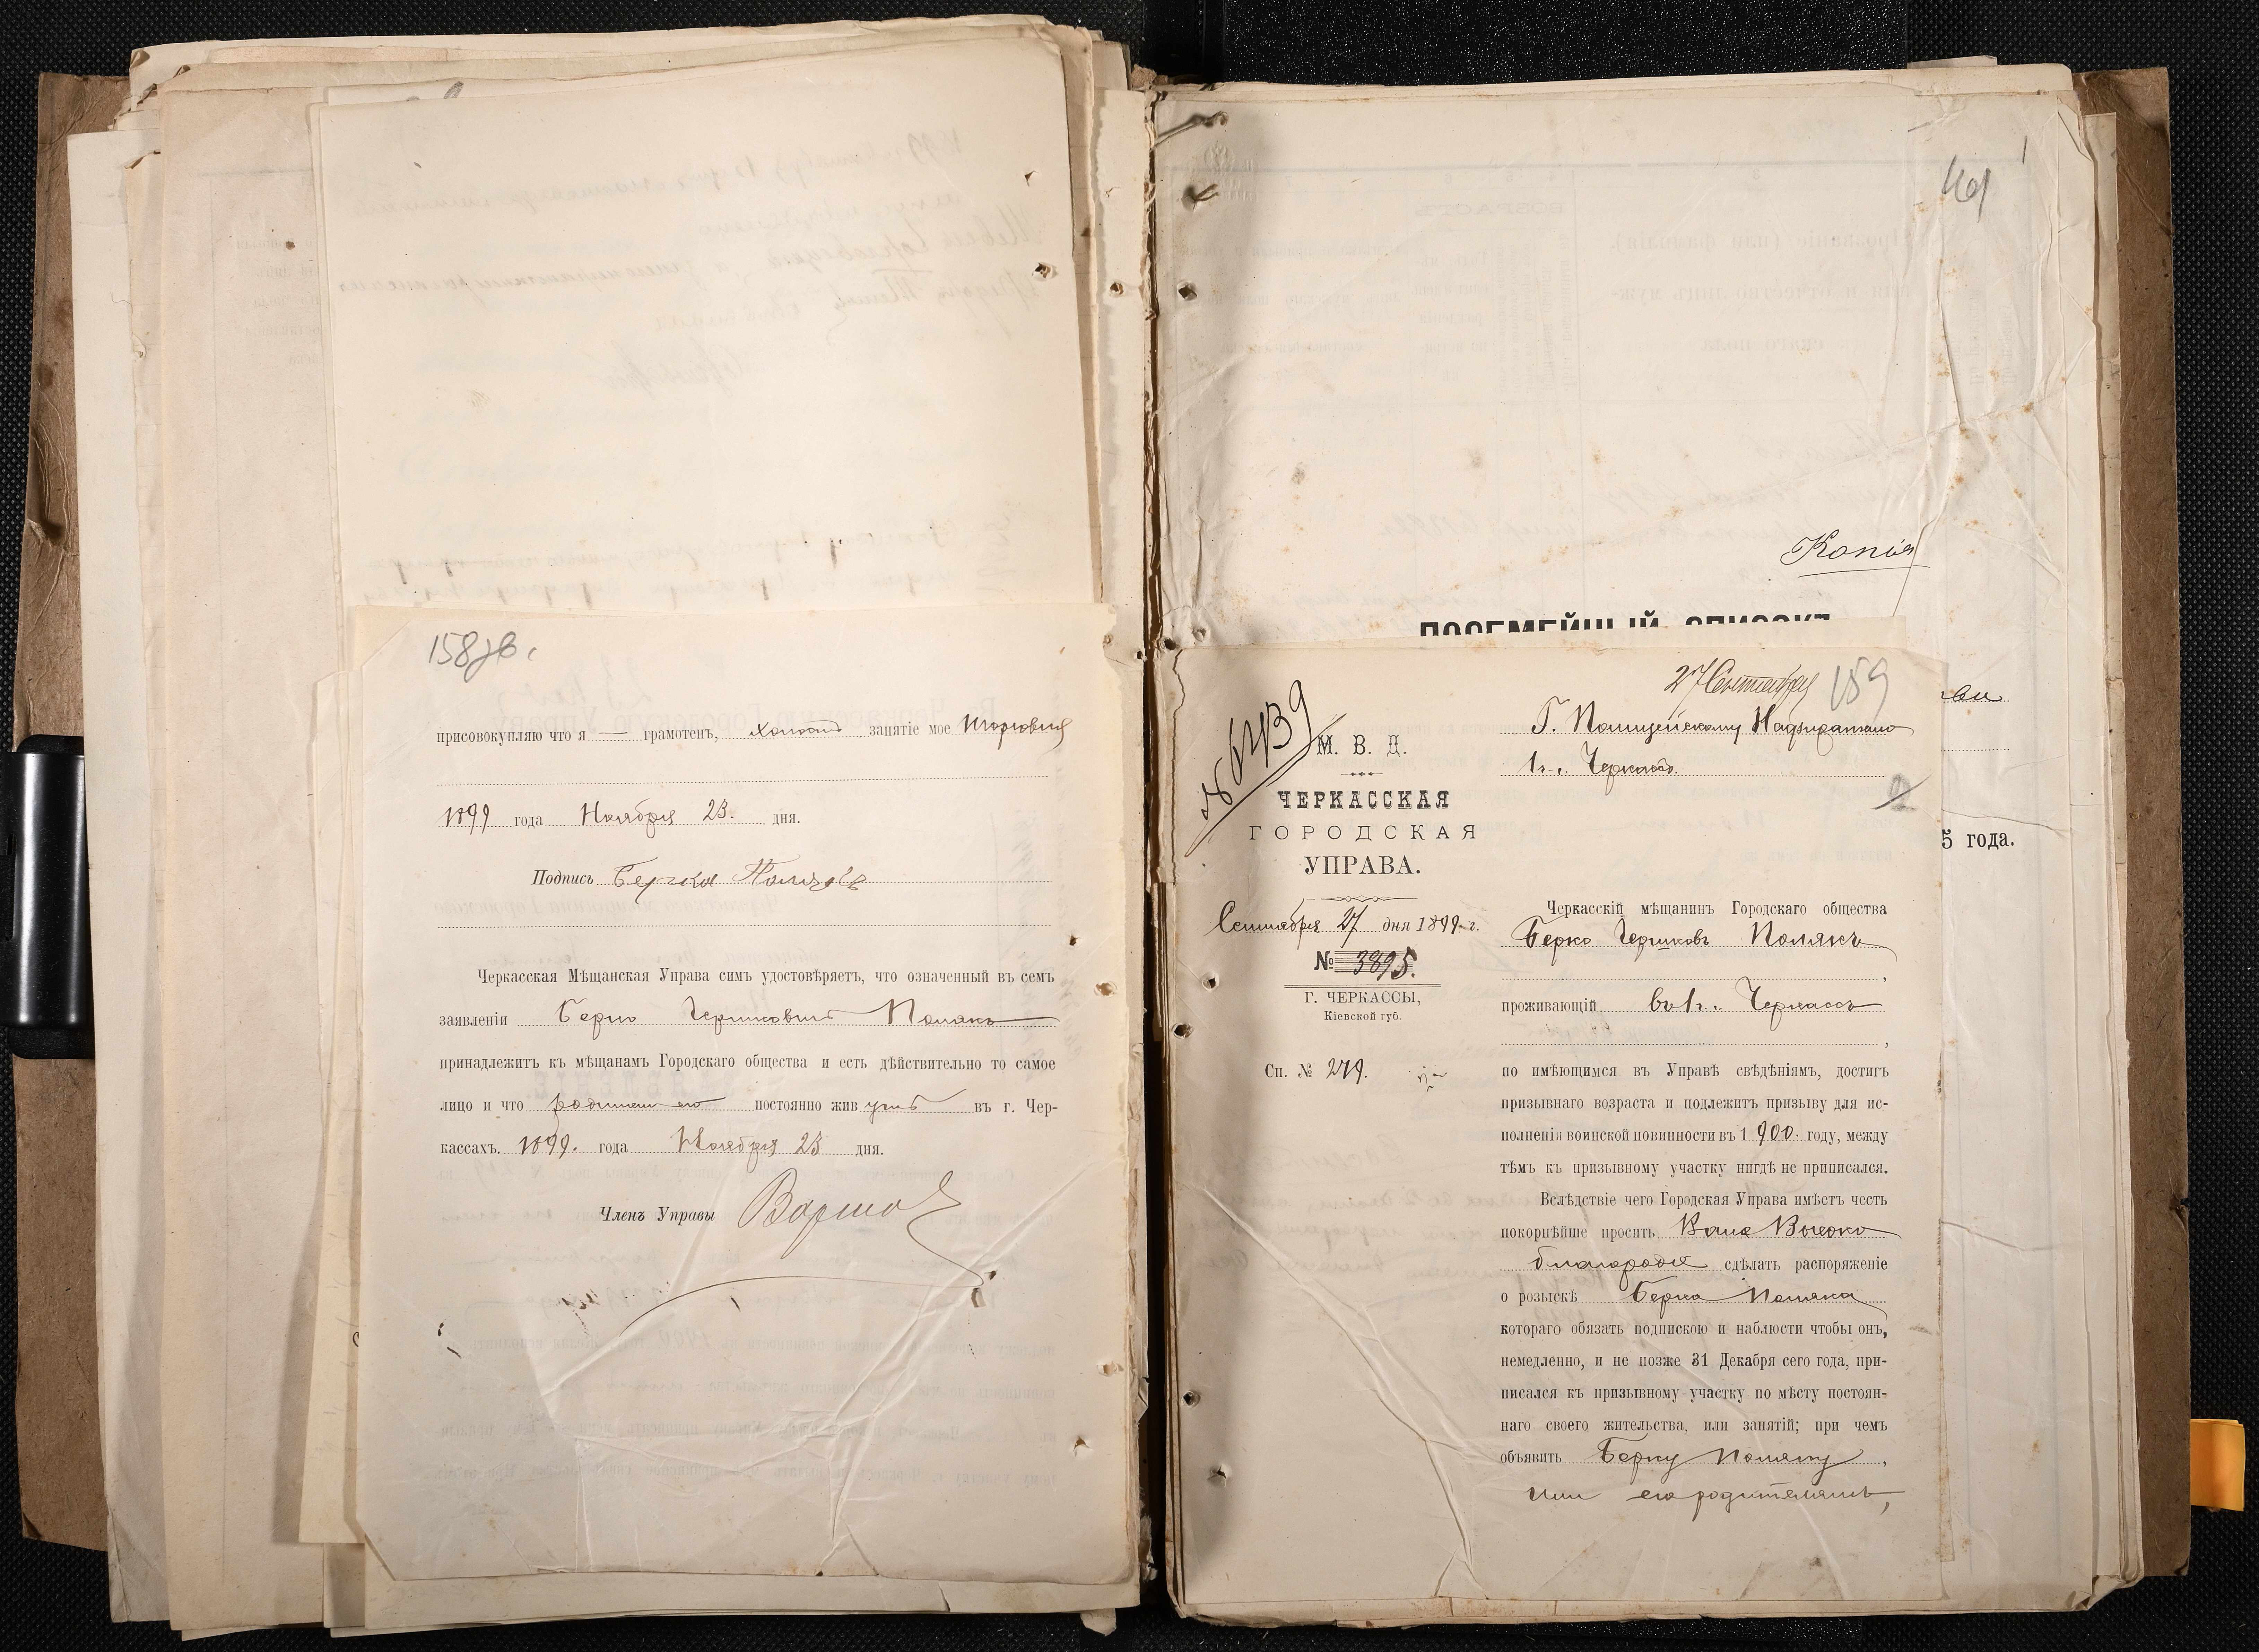 158 об.
присовокупляю что я — грамотенъ, холостъ занятіе мое торговля
1899 года Ноября 23. дня.
Подпись Берко Полякъ
Черкасская Мѣщанская Управа симъ удостовѣряетъ, что означенный въ семъ
заявленіи Берко Чериковичъ Полякъ
принадлежитъ къ мѣщанамъ Городскаго общества и есть дѣйствительно то самое
лицо и что родители его постоянно жив утъ въ г. Чер-
кассахъ. 1899. года Ноября 23 дня.
Членъ Управы
Копія
ПОСЕМЕЙНЫЙ СПИСОКЪ
5 года.
27 Сентября 159
№ 6139
М. В. Д.
ЧЕРКАССКАЯ
ГОРОДСКАЯ
УПРАВА.
Сентября 27 дня 1899 г.
№ 3895.
Г. ЧЕРКАССЫ,
Кіевской губ.
Сп. № 279.
Г. Полицейскому Надзирателю
1 ч. г. Черкассъ
2
Черкасскій мѣщанинъ Городскаго общества
Берко Чериковъ Полякъ
,
проживающій въ 1 ч. г. Черкассъ
,
по имѣющимся въ Управѣ свѣдѣніямъ, достигъ
призывнаго возраста и подлежитъ призыву для ис-
полненія воинской повинности въ 1900. году, между
тѣмъ къ призывному участку нигдѣ не приписался.
Вслѣдствіе чего Городская Управа имѣетъ честь
покорнѣйше просить Ваше Высоко
благородіе сдѣлать распоряженіе
о розыскѣ Берка Поляка
котораго обязать подпискою и наблюсти чтобы онъ,
немедленно, и не позже 31 Декабря сего года, при-
писался къ призывному участку по мѣсту постоян-
наго своего жительства, или занятій; при чемъ
объявить Берку Поляку,
или его родителямъ,